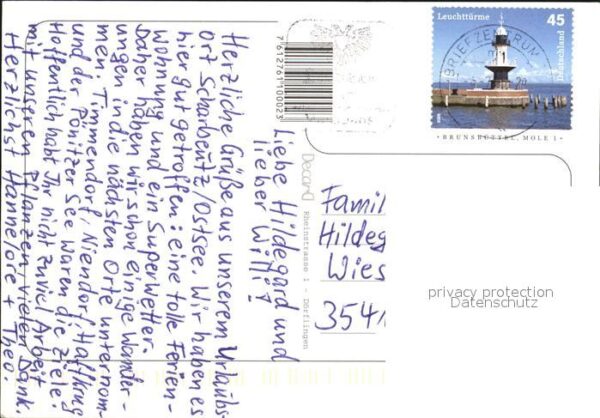 Liebe Hildegard und
lieber Willi!
Herzliche Grüße aus unserem Urlaubs-
Ort Scharbeutz/Ostsee. Wir haben es
hier gut getroffen: eine tolle Ferien-
wohnung und ein Superwetter.
Daher haben wir schon einige Wander-
ungen in die nächsten Orte unternom-
men. Timmendorf, Niendorf, Haffkrug
und der Pönitzer See waren die Ziele.
Hoffentlich habt Ihr nicht zuviel Arbeit
mit unseren Pflanzen. Vielen Dank.
Herzlichst Hannelore + Theo.
7612761100023
DecarD Rheinstrasse 1 - Dörflingen
Leuchttürme 45
Deutschland
BRIEFZENTRUM
BRUNSBÜTTEL, MOLE 1
Famil
Hildeg
Wies
354
privacy protection
Datenschutz